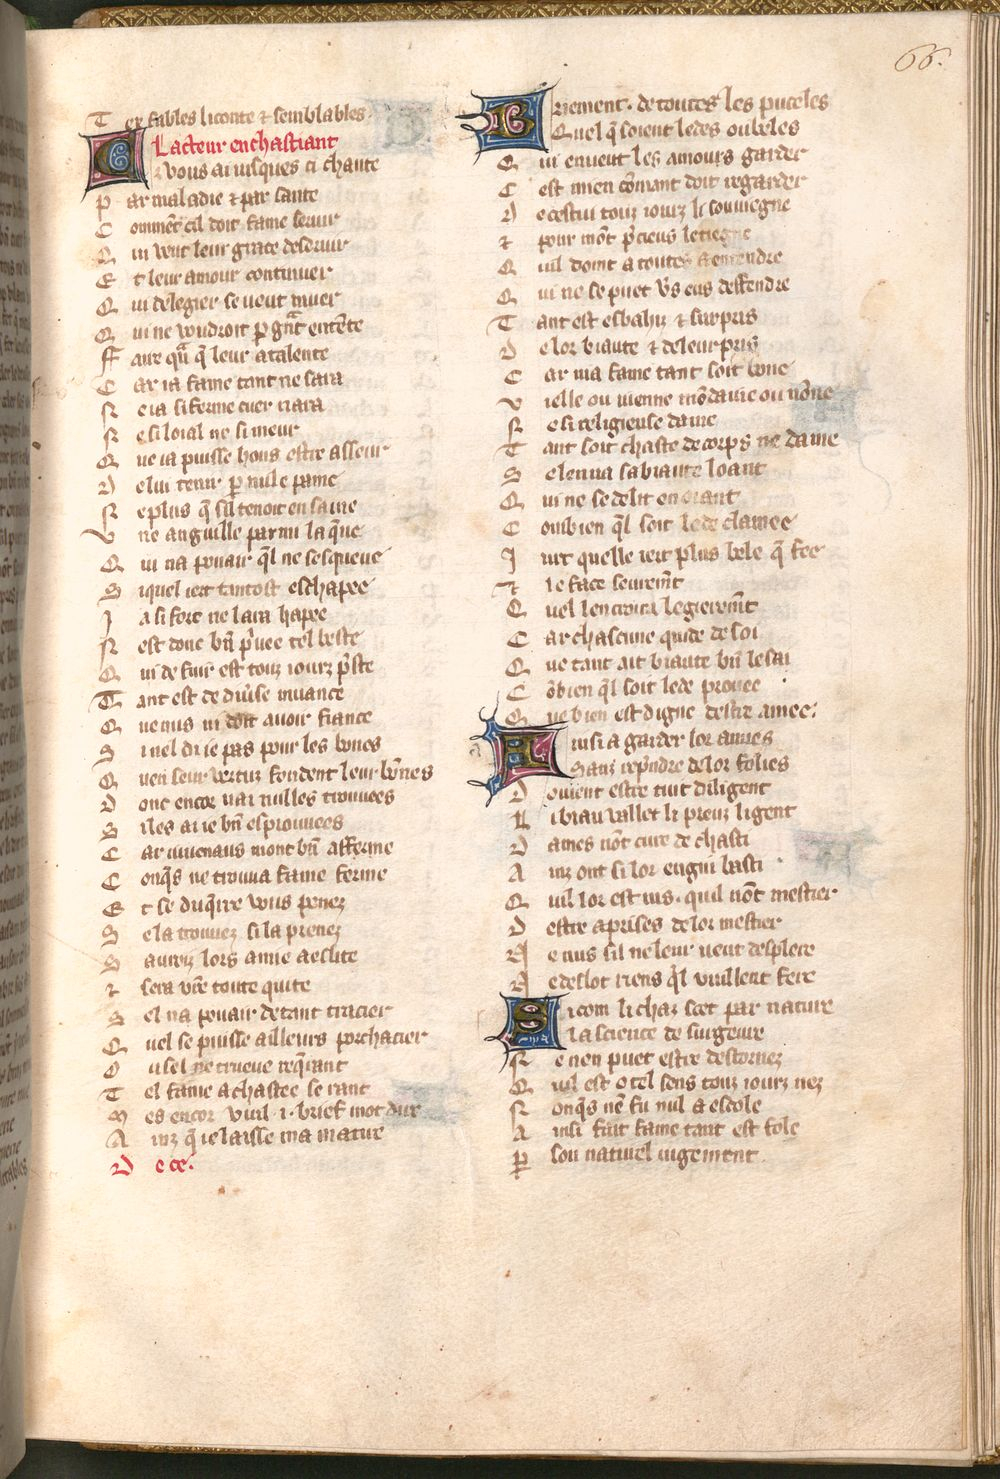 66.
Tex fables li conte & semblables
Lacteur enchastiant
Ci vous ai iusques ci chante
Par maladie & par sante
Comment cil doit fame seruir
Qui veut leur grace desseruir
Et leur amour continuer
Qui delegier se veut muer
Qui ne voudroit p gnt entente
Faire qua q leur atalente
Car ia fame tant ne sara
Ne ia si ferme cuer nara
Ne si loial ne si meur
Que ia puisse hons estre asseur
De lui tenir p nule paine
Ne plus q sil tenoit en saine
Vne anguille parmi la que
Qui na pouair ql ne sesqueue
Si quel iert tantost eschapee
Ia si fort ne lara hapee
Nest donc bn priuee tel beste
Qui de fuir est touz iourz pste
Tant est de diuse muance
Que nus ni doit auoir fiance
Si nel di ie pas pour les bones
Quen seur vertuz fondent leur bones
Donc encor nai nulles trouuees
Si les ai ie bn esprouuees
Car iuuenaus mont bn afferme
Conqs ne trouua fame ferme
Et se duqrre vous penez
Se la trouuez si la prenez
Saurez lors amie a eslite
& sera vre toute quite
Sel na pouair de tant tracier
Quel se puisse ailleurs porchacier
Ou sel ne trueue reqrant
Tel fame a chastee se rant
Mes encor vuil .i. brief mot dire
Ainz q ie laisse ma matire
De ce.
Briement. de toutes les puceles
Quel q soient ledes ou beles
Qui enuent les amours garder
Cest mien comant doit regarder
De cestui touz iourz li souuiegne
& pour mot pcieus le tiegne
Quil doint a toutes a entendre
Qui ne se puet vs eus deffendre
Tant est esbahiz & surpris
De lor biaute & de leur pris
Car ma fame tant soit bone
Vielle ou vienne mondaine ou none
Ne si religieuse dame
Tant soit chaste de corps ne dame
Se len va sa biaute loant
Qui ne se delit en oiant
Combien ql soit lede clamee
Iurt quelle iert plus bele q fee
& le face seuremt
Quel len croira legieremt
Car chascune quide de soi
Que tant ait biaute bn le sai
Cobien ql soit lede prouee
Que bien est digne destre amee.
Ainsi a garder lor amies
Sanz repndre de lor folies
Doiuent estre tuit diligent
Li biau vallet li preuz li gent
Dames not cure de chasti
Ainz ont si lor engin basti
Quil lor est uis. quil not mestier
Destre aprises de lor mestier
Ne nus sil ne leur veut desplere
Ne deslot riens ql vuillent fere
Si com li chaz scet par nature
La science de surgeure
Ne nen puet estre destornez
Quil est o tel sens touz iourz nez
Nonqs nen fu nul a escole
Ainsi fait fame tant est fole
Par son naturel iugement